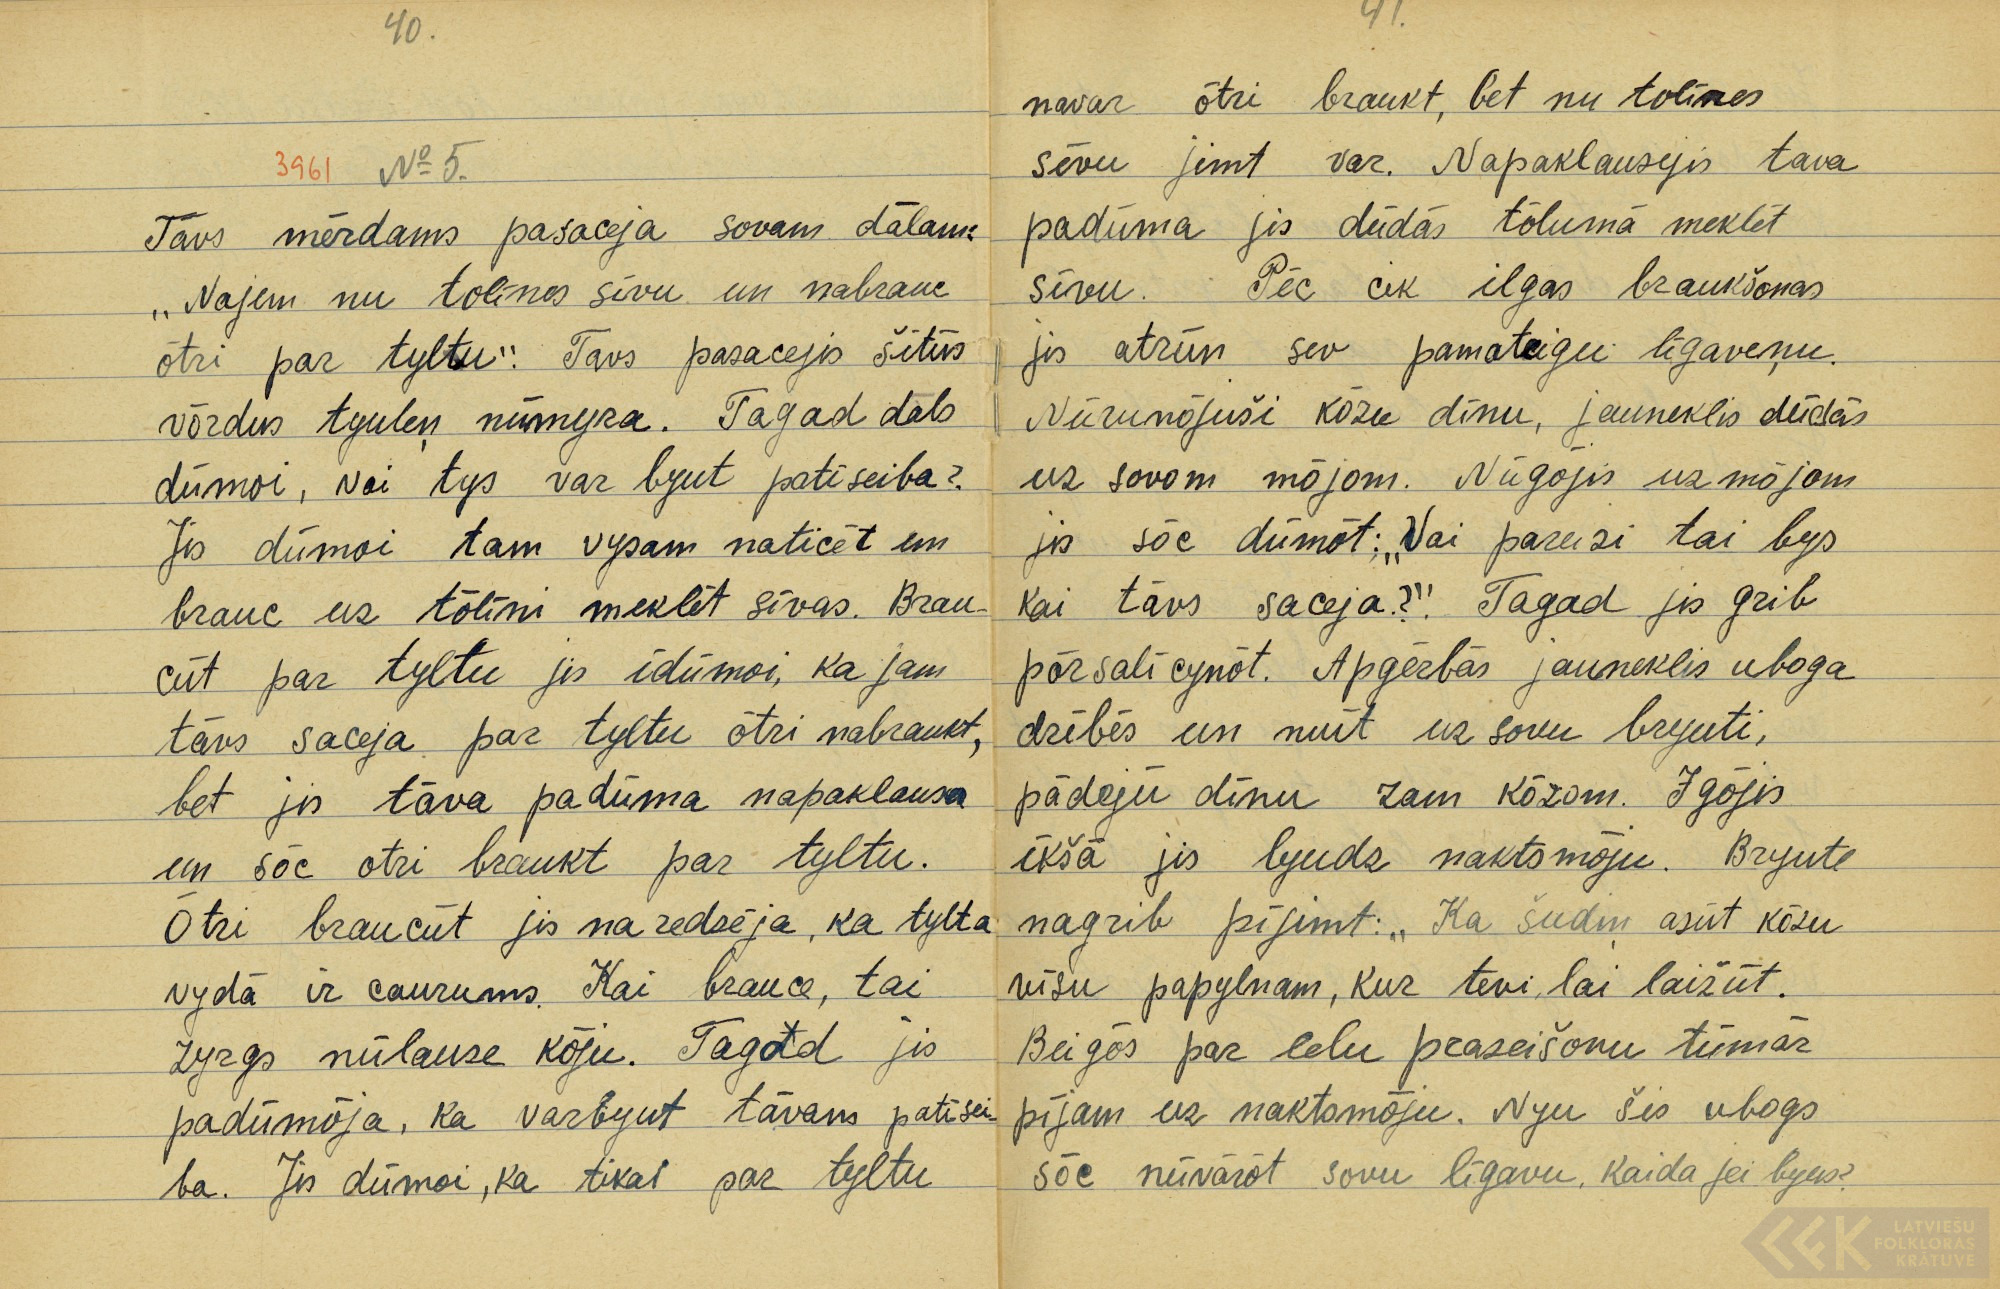 40.
3961 № 5.
Tāvs mērdams pasaceja sovam dālam:
„Najem nu tolīnes sīvu un nabrauc
ōtri par tyltu“. Tāvs pasacejis šitūs
vōrdus tyuleņ nūmyra. Tagad dāls
dūmoi, voi tys var byut patīseiba?
Jis dūmoi tam vysam naticēt un
brauc uz tōlīni meklēt sīvas. Brau-
cūt par tyltu jis īdūmoi, ka jam
tāvs saceja par tyltu ōtri nabraukt,
bet jis tāva padūma napaklausa
un sōc otri braukt par tyltu.
Ōtri braucūt jis na redzēja, ka tylta
vydā ir caurums. Kai brauce, tai
zyrgs nūlauze kōju. Tagad jis
padūmōja, ka varbyut tāvam patīsei-
ba. Jis dūmoi, ka tikai par tyltu
41.
navar ōtri braukt, bet nu tolīnes
sēvu jimt var. Napaklausejis tava
padūma jis dūdās tōlumā meklēt
sīvu. Pēc cik ilgas braukšonas
jis atrūn sev pamateigu līgaveņu.
Nūrunōjuši kōzu dīnu, jauneklis dūdās
uz sovom mōjom. Nūgōjis uz mōjom
jis sōc dūmōt: „Vai pareizi tai bys
kai tāvs saceja?“. Tagad jis grib
pōrsalīcynōt. Apgērbās jauneklis uboga
drēbēs un nuīt uz sovu bryuti,
pādejū dīnu zam kōzom. Igōjis
īkšā jis lyudz naktsmōju. Bryute
nagrib pījimt: „Ka šudiņ asūt kōzu
vīsu papylnam, kur tevi lai laižūt.
Beigōs par lelu praseišonu tūmār
pījam uz naktsmōju. Nyu šis ubogs
sōc nūvārōt sovu līgavu, kaida jei byus?
LATVIEŠU
FOLKLORAS
KRĀTUVE